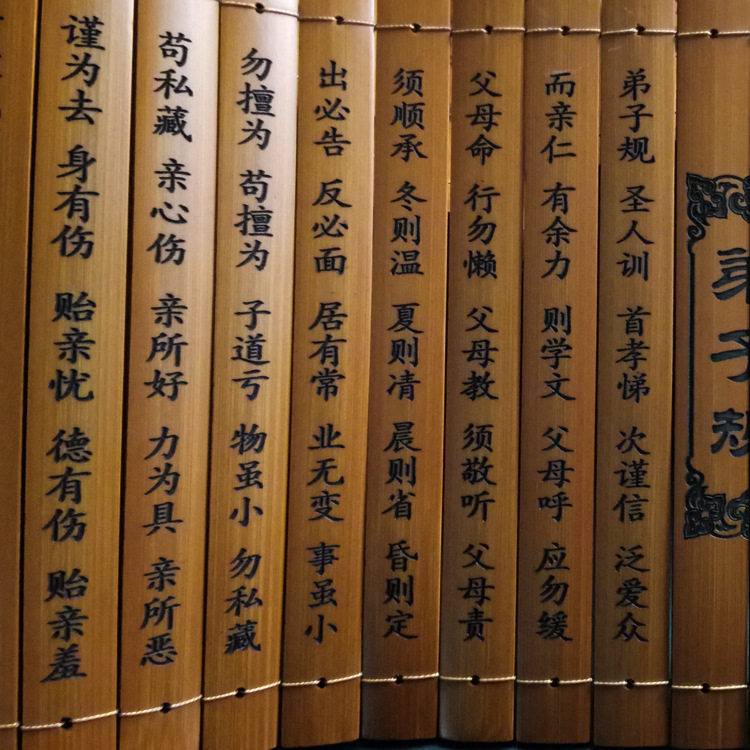 弟子规
弟子规 圣人训 首孝悌 次谨信 泛爱众
而亲仁 有余力 则学文 父母呼 应勿缓
父母命 行勿懒 父母教 须敬听 父母责
须顺承 冬则温 夏则清 晨则省 昏则定
出必告 反必面 居有常 业无变 事虽小
勿擅为 苟擅为 子道亏 物虽小 勿私藏
苟私藏 亲心伤 亲所好 力为具 亲所恶
谨为去 身有伤 贻亲忧 德有伤 贻亲羞